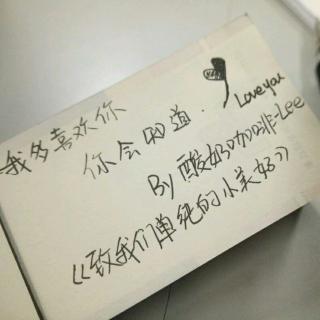 我多喜欢你
你会知道.
Love you
By 酸奶咖啡-Lee
《致我们单纯的小美好》